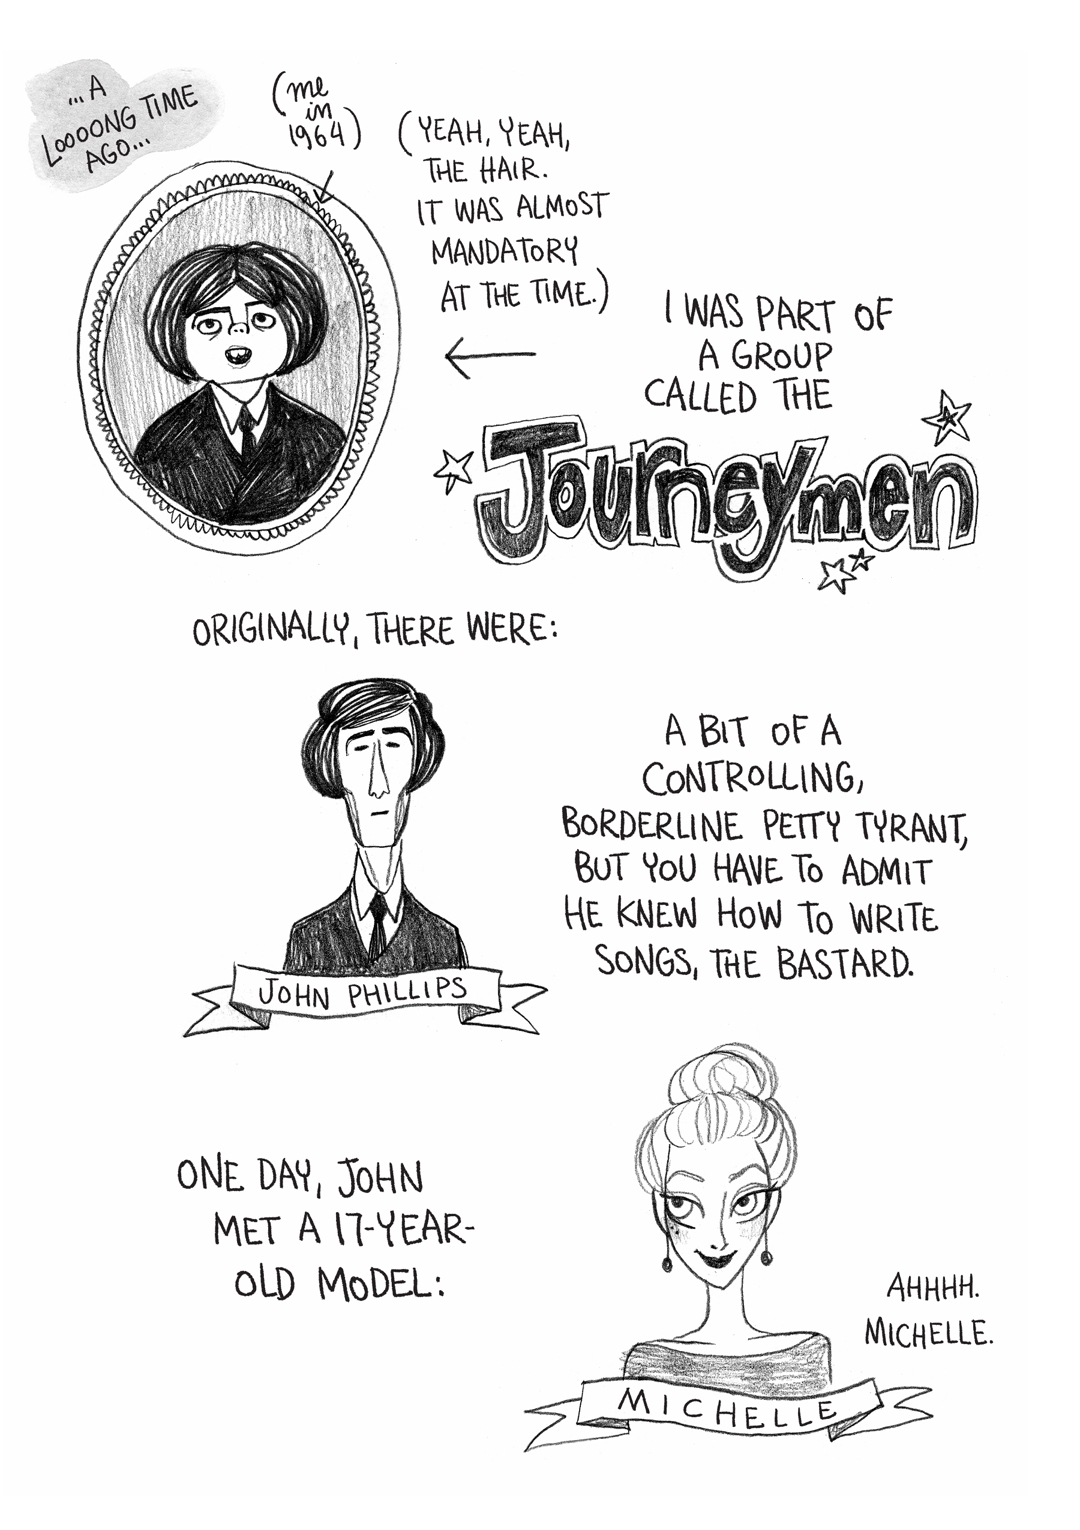 ...A
LOOOONG TIME
AGO...
(me
in
1964)
(YEAH, YEAH,
THE HAIR.
IT WAS ALMOST
MANDATORY
AT THE TIME.)
I WAS PART OF
A GROUP
CALLED THE
Journeymen
ORIGINALLY, THERE WERE:
A BIT OF A
CONTROLLING,
BORDERLINE PETTY TYRANT,
BUT YOU HAVE TO ADMIT
HE KNEW HOW TO WRITE
SONGS, THE BASTARD.
JOHN PHILLIPS
ONE DAY, JOHN
MET A 17-YEAR-
OLD MODEL:
AHHHH.
MICHELLE.
MICHELLE